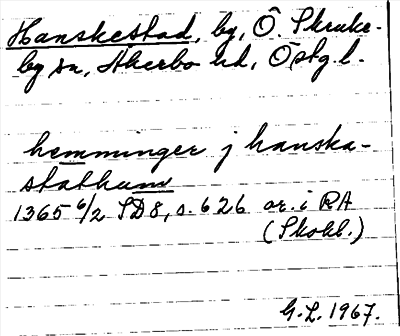 Hanskestad, by, Ö. Skruke-
by sn, Åkerbo hd, Östg l.
hemminger j hanska-
stathum
1365 6/2 SD 8, s. 626 or. i RA
(Skokl.)
G.L. 1967.